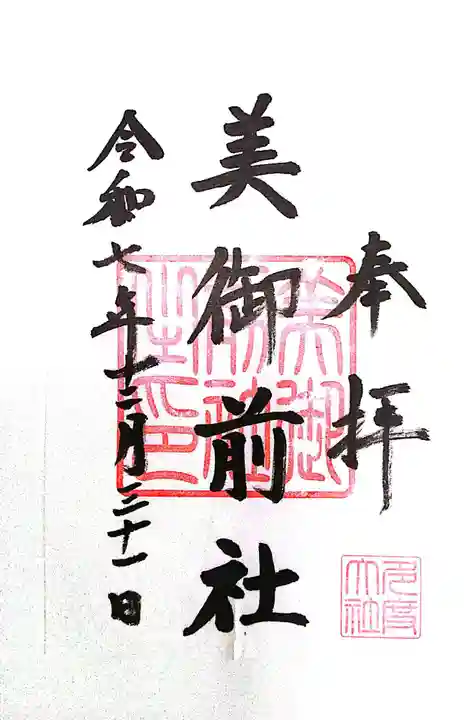 奉拝
美御前社
令和七年十二月二十一日
美御
前社
之印
多度
大社